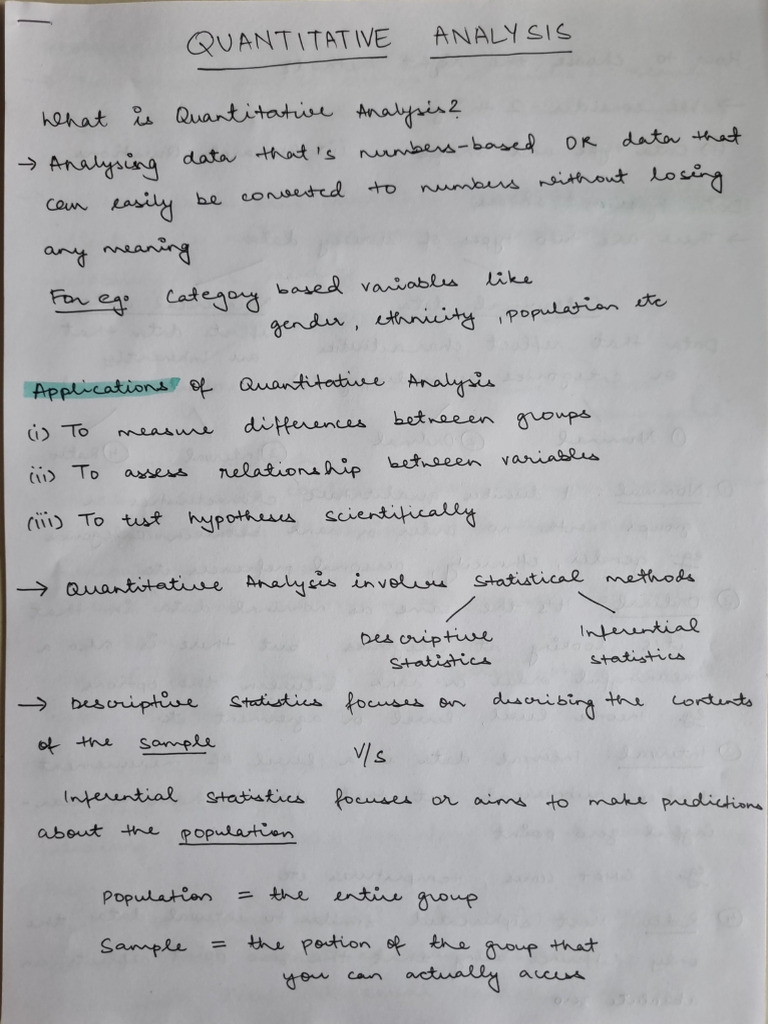 QUANTITATIVE ANALYSIS
What is Quantitative Analysis?
→ Analysing data that's numbers-based OR data that
can easily be converted to numbers without losing
any meaning
For eg: Category based variables like
gender, ethnicity, population etc
Applications of Quantitative Analysis
(i) To measure differences between groups
(ii) To assess relationship between variables
(iii) To test hypotheses scientifically
→ Quantitative Analysis involves statistical methods
Descriptive Statistics
Inferential Statistics
→ Descriptive Statistics focuses on describing the contents
of the sample
V/s
Inferential Statistics focuses or aims to make predictions
about the population
Population = the entire group
Sample = the portion of the group that
you can actually access